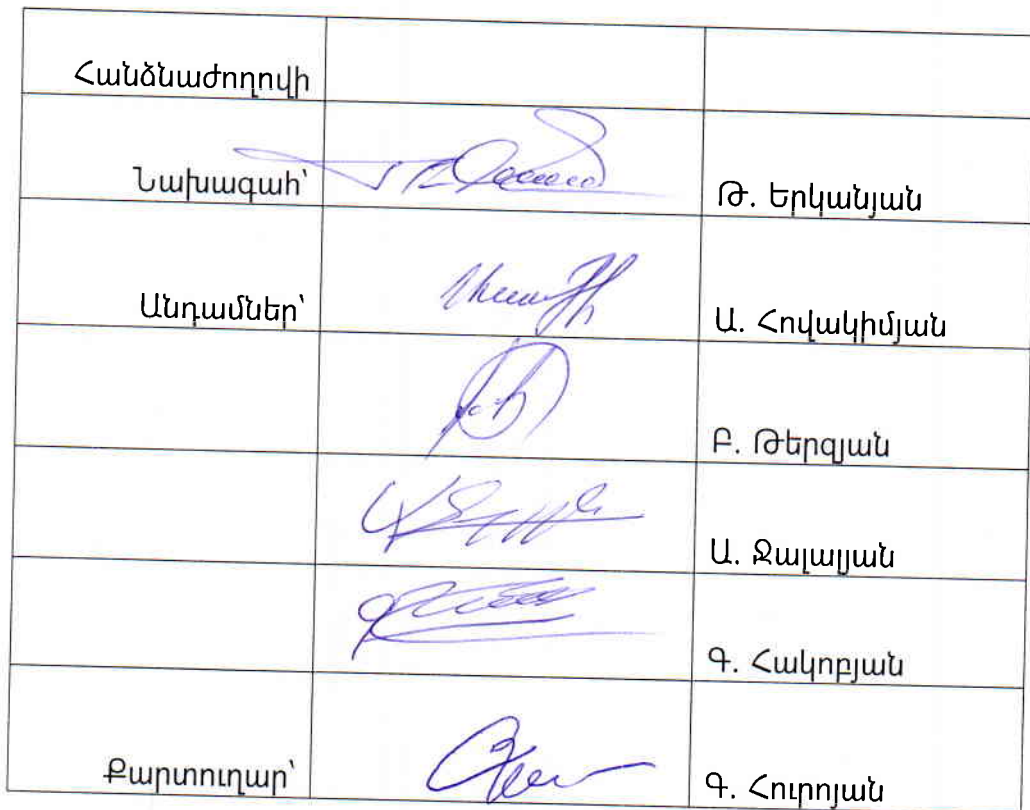 Հանձնաժողովի
Նախագահ՝ Թ. Երկանյան
Անդամներ՝ Ա. Հովակիմյան
Բ. Թերզյան
Ա. Ջալալյան
Գ. Հակոբյան
Քարտուղար՝ Գ. Հուրոյան